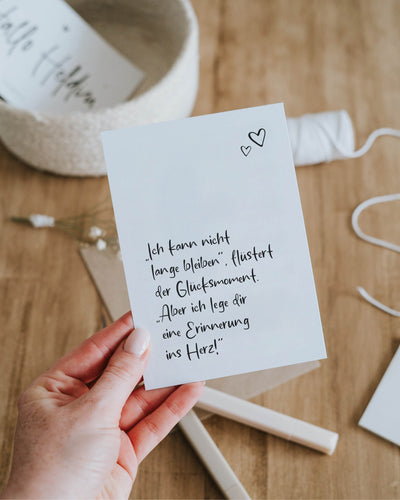 Hallo Heldin
„Ich kann nicht
lange bleiben“, flüstert
der Glücksmoment.
„Aber ich lege dir
eine Erinnerung
ins Herz!“